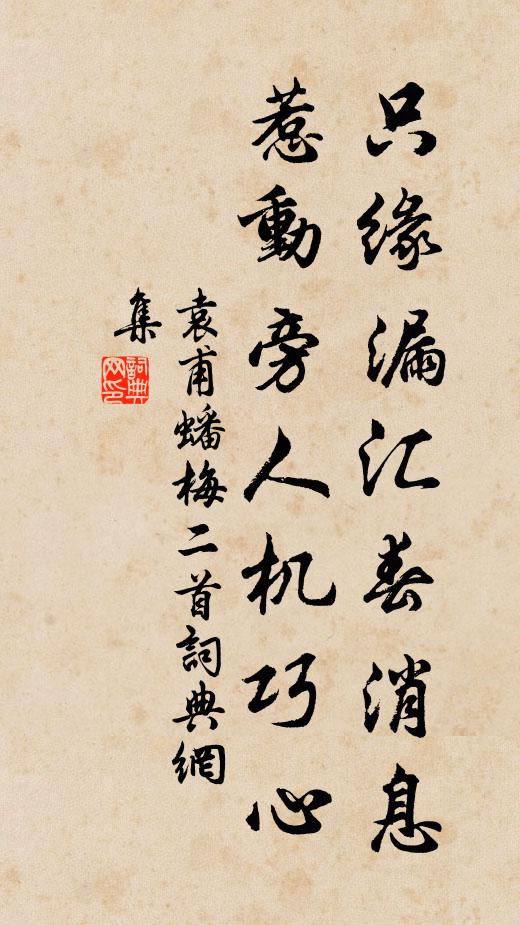 只缘漏汇春消息
惹動旁人机巧心
袁甫蟠梅二首詞典網
集
詞典网印